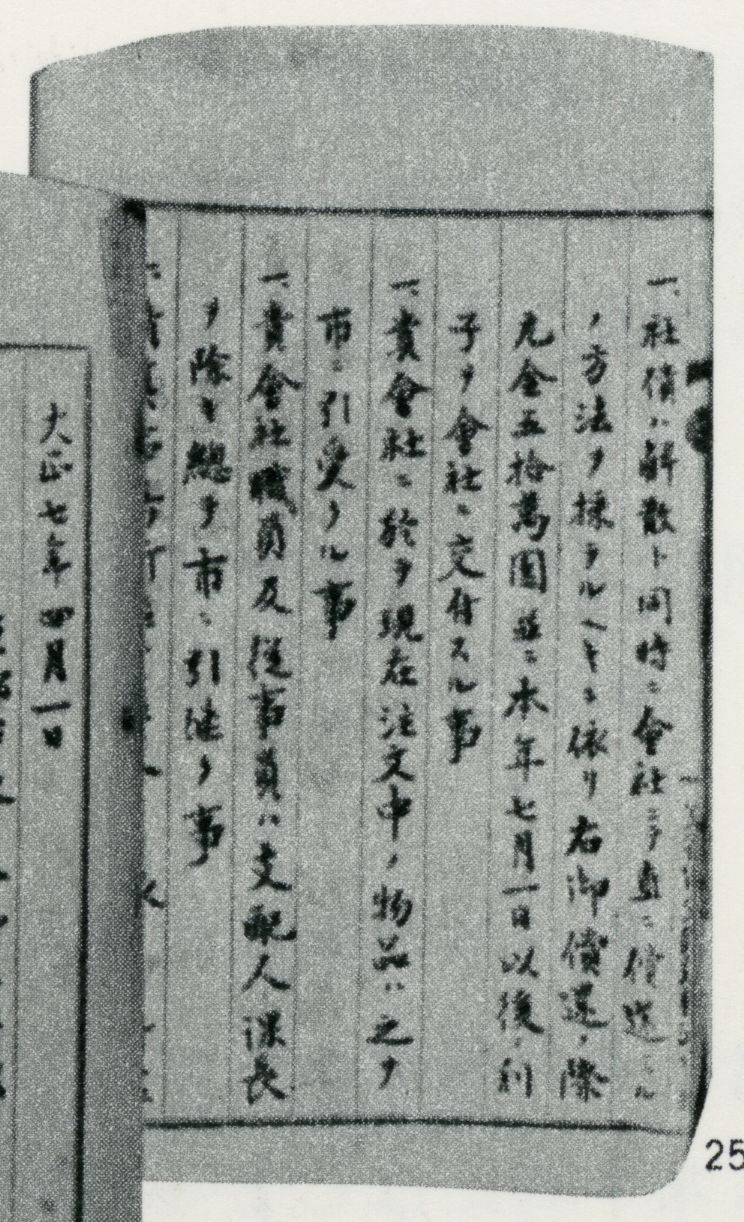 一、社債ハ解散ト同時ニ會社ニテ直ニ償還スル
ノ方法ヲ採ラルヘキニ依リ右御償還ノ際
元金五拾萬圓並ニ本年七月一日以後ノ利
子ヲ會社ニ交付スル事
一、貴會社ニ於テ現在注文中ノ物品ハ之ヲ
市ニ引受クル事
一、貴會社職員及從事員ハ支配人、課長
ヲ除キ總テ市ニ引継ク事
大正七年四月一日
25